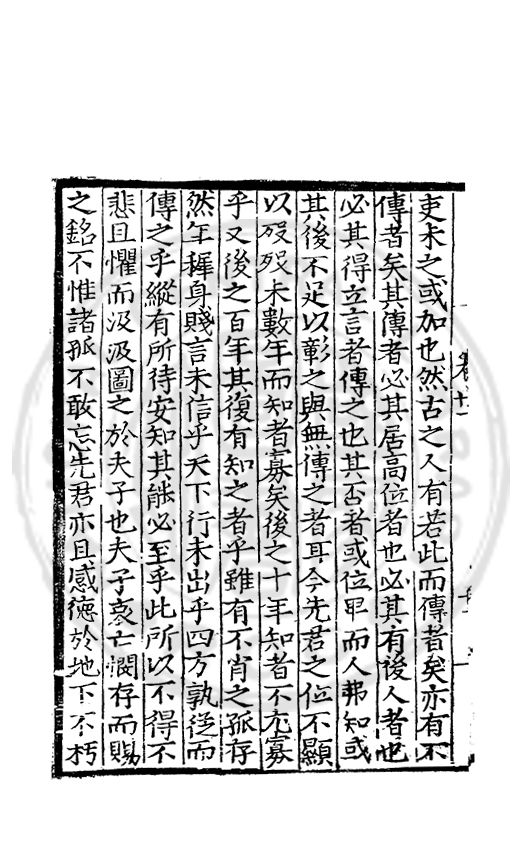 吏未之或加也然古之人有若此而傳者矣亦有不
傳者矣其傳者必其居高位者也必其有後人者也
必其得立言者傳之也其否者或位卑而人弗知或
其後不足以彰之與無傳之者耳今先君之位不顯
以歿歿未數年而知者寡矣後之十年知者不尤寡
乎又後之百年其復有知之者乎雖有不肖之孤存
然年穉身賤言未信乎天下行未出乎四方孰從而
傳之乎縱有所待安知其能必至乎此所以不得不
悲且懼而汲汲圖之於夫子也夫子哀亡憫存而賜
之銘不惟諸孤不敢忘先君亦且感德於地下不朽